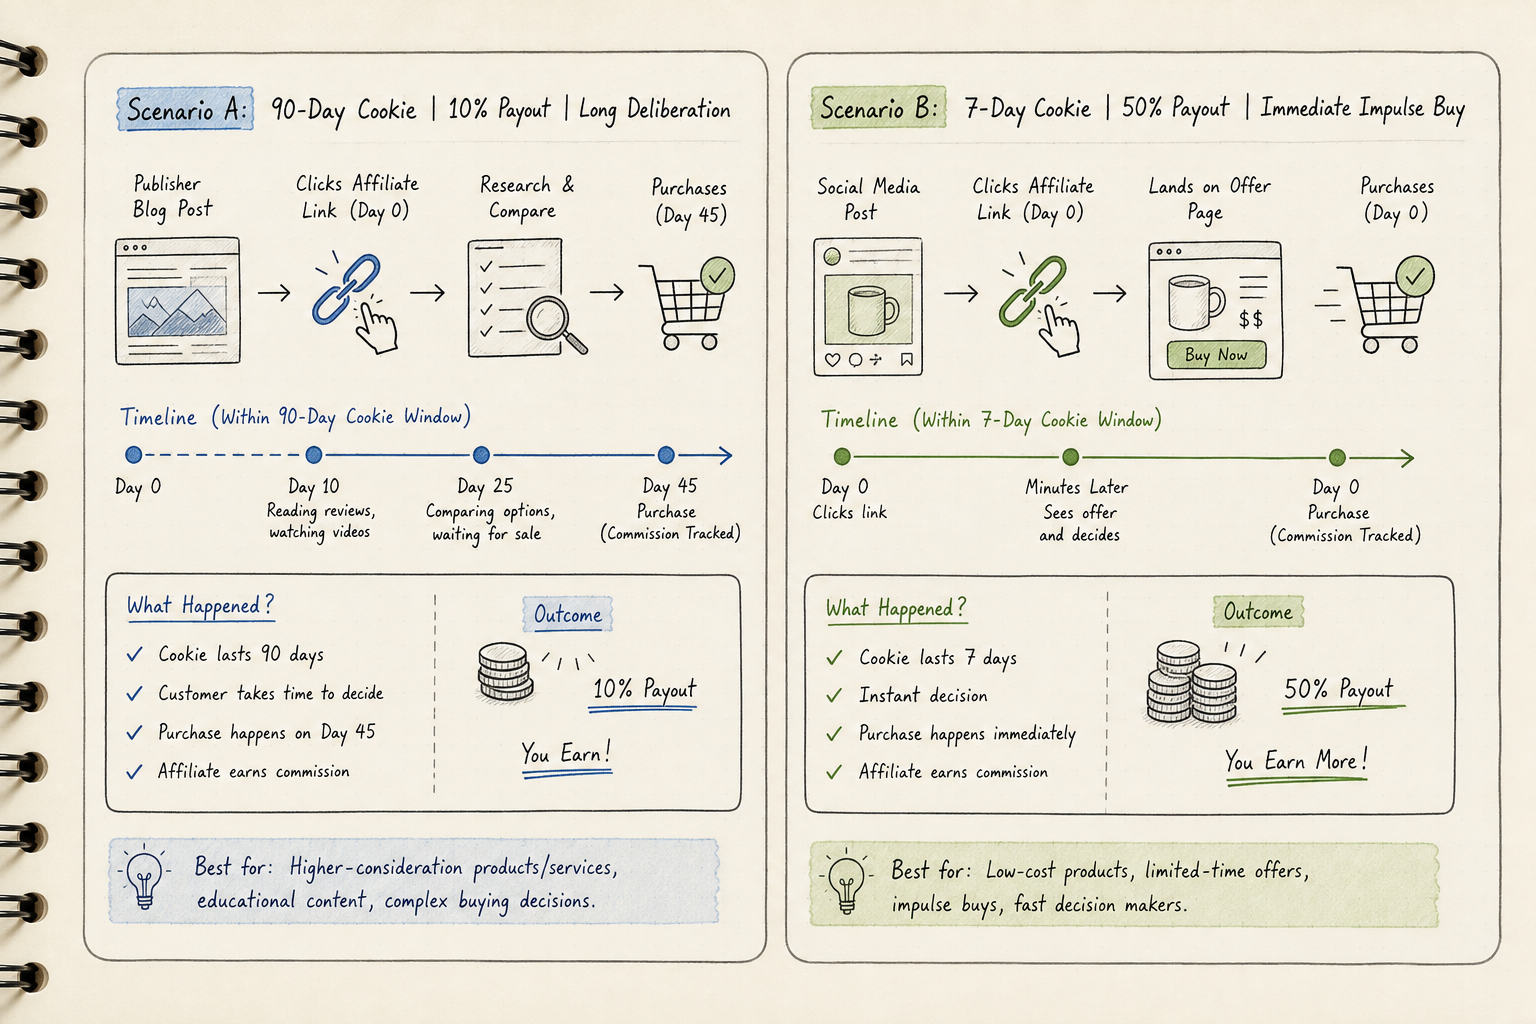 Scenario A: 90-Day Cookie | 10% Payout | Long Deliberation
Publisher
Blog Post
Clicks Affiliate
Link (Day 0)
Research &
Compare
Purchases
(Day 45)
Timeline (Within 90-Day Cookie Window)
Day 0
Day 10
Reading reviews,
watching videos
Day 25
Comparing options,
waiting for sale
Day 45
Purchase
(Commission Tracked)
What Happened?
Cookie lasts 90 days
Customer takes time to decide
Purchase happens on Day 45
Affiliate earns commission
Outcome
10% Payout
You Earn!
Best for: Higher-consideration products/services,
educational content, complex buying decisions.
Scenario B: 7-Day Cookie | 50% Payout | Immediate Impulse Buy
Social Media
Post
Clicks Affiliate
Link (Day 0)
Lands on Offer
Page
$$
Buy Now
Purchases
(Day 0)
Timeline (Within 7-Day Cookie Window)
Day 0
Clicks link
Minutes Later
Sees offer
and decides
Day 0
Purchase
(Commission Tracked)
What Happened?
Cookie lasts 7 days
Instant decision
Purchase happens immediately
Affiliate earns commission
Outcome
50% Payout
You Earn More!
Best for: Low-cost products, limited-time offers,
impulse buys, fast decision makers.